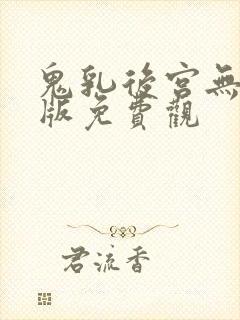 鬼乳後宮無
版免費觀
君流香